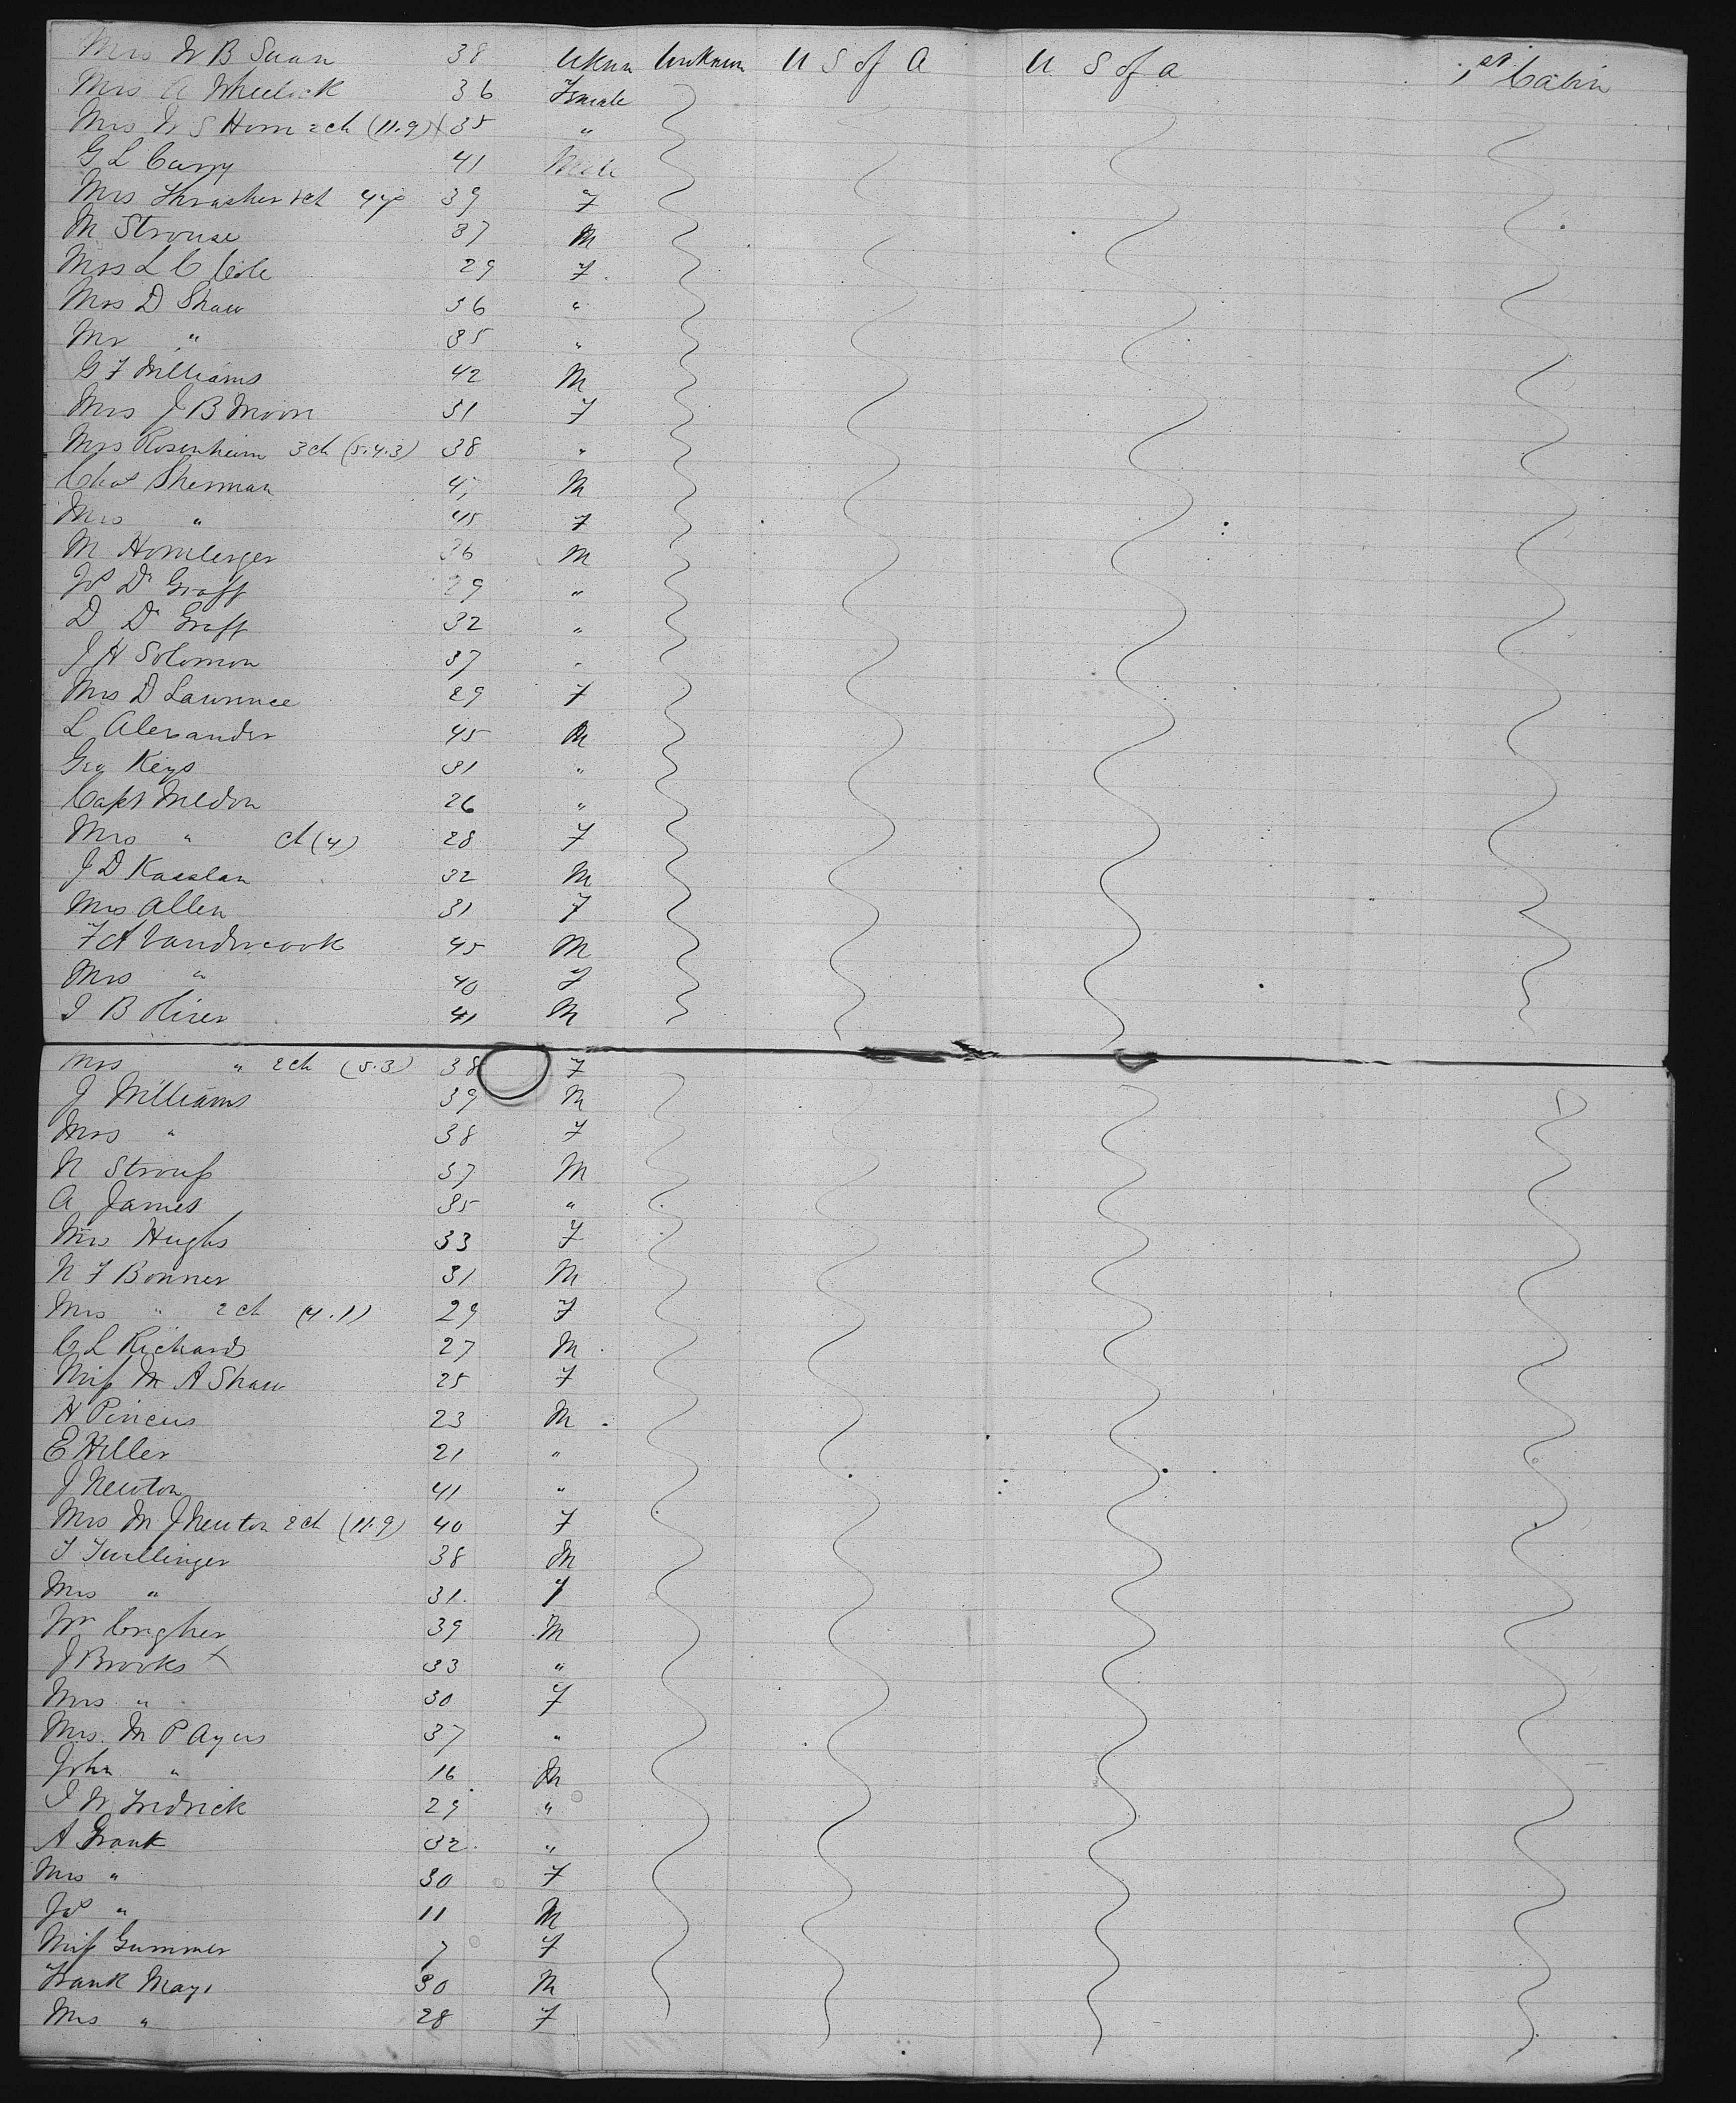 Mrs W B Swan 38 Ukun Unknown U S of A U S of A 1st Cabin
Mrs A Wheelock 36 Female
Mrs W S Horn 2ch (11.9) 35 "
G L Curry 41 Male
Mrs Thrasher ch 39 F
M Strouse 37 M
Mrs L C Cole 29 F
Mrs D Shaw 36 "
Mr " 35 "
G F Williams 42 M
Mrs J B Moore 31 F
Mrs Rosenheim 3ch (5.4.3) 38 "
Chas Sherman M
Mrs " 45 F
M Hornberger 36 M
Js De Graff 29 "
D De Graff 32 "
J H Solomon 37 "
Mrs D Lawrence 29 F
L Alexander 45 M
Geo Keys 31 "
Capt Weldon 26 "
Mrs " ch (4) 28 F
J D Kaaslan 32 M
Mrs Allen 31 F
F A Vandercook 45 M
Mrs " 40 F
I B 41 M
Mrs " 2ch (5.3) 38 F
J Williams 39 M
Mrs " 38 F
N Strouss 37 M
A James 35 "
Mrs Hughs 33 F
N F Bonner 31 M
Mrs " 2ch (4.1) 29 F
C L Richards 27 M
Miss M A Shaw 25 F
H Pincus 23 M
E Hiller 21 "
J Newton 41 "
Mrs M J Newton 2ch (11.9) 40 F
38 M
Mrs " 31 F
Wm 39 M
J Brooks x 33 "
Mrs " 30 F
Mrs M P Ayers 37 "
John " 16 M
J W Fredrick 29 "
A Frank 32 "
Mrs " 30 F
Js " 11 M
Miss Gummer 7 F
Frank Mays 30 M
Mrs " 28 F